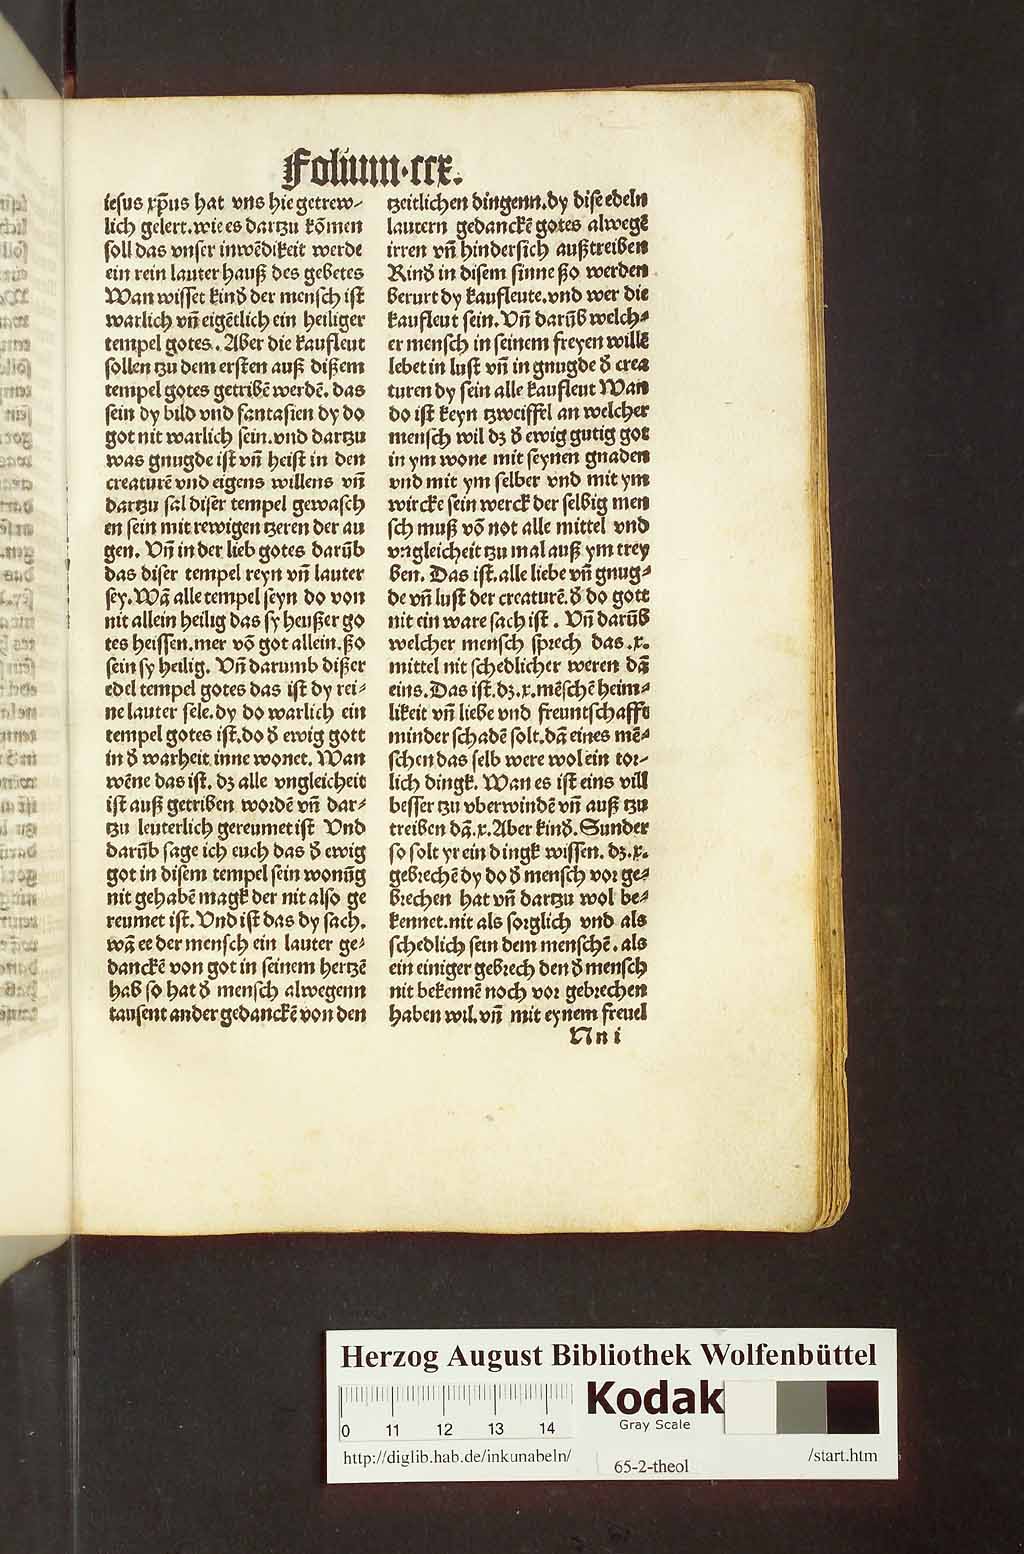 Folium·ccx.
iesus xp̄us hat vns hie getrew-
lich gelert.wie es dartzu kōmen
soll das vnser inwēdikeit werde
ein rein lauter hauß des gebetes
Wan wisset kinđ der mensch ist
warlich vn̄ eigētlich ein heiliger
tempel gotes. Aber die kaufleut
sollen tzu dem ersten auß dißem
tempel gotes getribē werdē. das
sein dy bild vnd fantasien dy do
got nit warlich sein.vnd dartzu
was gnugde ist vn̄ heist in den
creaturē vnd eigens willens vn̄
dartzu sal diser tempel gewasch
en sein mit rewigen tzeren der au
gen. Vn̄ in der lieb gotes darūb
das diser tempel reyn vn̄ lauter
sey. Wā alle tempel seyn do von
nit allein heilig das sy heußer go
tes heissen.mer vō got allein.ßo
sein sy heilig. Vn̄ darumb dißer
edel tempel gotes das ist dy rei-
ne lauter sele.dy do warlich ein
tempel gotes ist.do đ ewig gott
in đ warheit inne wonet. Wan
wēne das ist. dz alle vngleicheit
ist auß getriben wordē vn̄ dar-
tzu leuterlich gereumet ist Vnd
darūb sage ich euch das đ ewig
got in disem tempel sein wonūg
nit gehabē magk der nit also ge
reumet ist. Vnd ist das dy sach.
wā ee der mensch ein lauter ge-
danckē von got in seinem hertzē
hab so hat đ mensch alwegenn
tausent ander gedanckē von den
tzeitlichen dingenn.dy dise edeln
lautern gedanckē gotes alwegē
irren vn̄ hindersich außtreiben
Kinđ in disem sinne ßo werden
berurt dy kaufleute.vnd wer die
kaufleut sein. Vn̄ darūb welch-
er mensch in seinem freyen willē
lebet in lust vn̄ in gnugde đ crea
turen dy sein alle kaufleut Wan
do ist keyn tzweiffel an welcher
mensch wil dz đ ewig gutig got
in ym wone mit seynen gnaden
vnd mit ym selber vnd mit ym
wircke sein werck der selbig men
sch muß vō not alle mittel vnd
vngleicheit tzu mal auß ym trey
ben. Das ist.alle liebe vn̄ gnug-
de vn̄ lust der creaturē.đ do gott
nit ein ware sach ist. Vn̄ darūb
welcher mensch sprech das .x.
mittel nit schedlicher weren dā
eins. Das ist.dz.x.mēschē heim-
likeit vn̄ liebe vnd freuntschafft
minder schadē solt.dā eines mē-
schen das selb were wol ein tor-
lich dingk. Wan es ist eins vill
besser tzu vberwindē vn̄ auß tzu
treiben dā.x. Aber kinđ. Sunder
so solt yr ein dingk wissen. dz.x.
gebrechē dy do đ mensch vor ge-
brechen hat vn̄ dartzu wol be-
kennet.nit als sorglich vnd als
schedlich sein dem menschē. als
ein einiger gebrech den đ mensch
nit bekennē noch vor gebrechen
haben wil.vn̄ mit eynem freuel
Nn i
Herzog August Bibliothek Wolfenbüttel
0 11 12 13 14
Kodak
Gray Scale
http://diglib.hab.de/inkunabeln/
65-2-theol
/start.htm